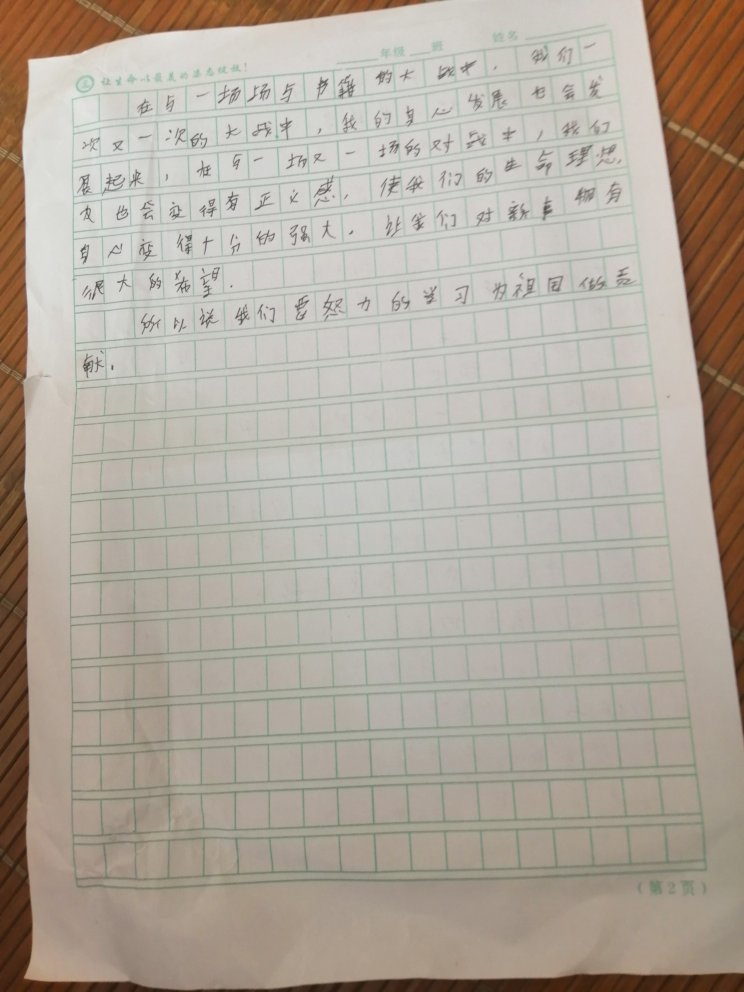 让生命以最美的姿态绽放！ ____年级 ___班 姓名________
在与一场场与书籍的大战中，我们一
次又一次的大战中，我的身心发展也会发
展起来，在与一场又一场的对战中，我们
也会变得有正义感，使我们的生命理想
身心变得十分的强大．让我们对新事拥有
很大的希望．
所以说我们要怒力的学习为祖国做贡
献．
（第2页）